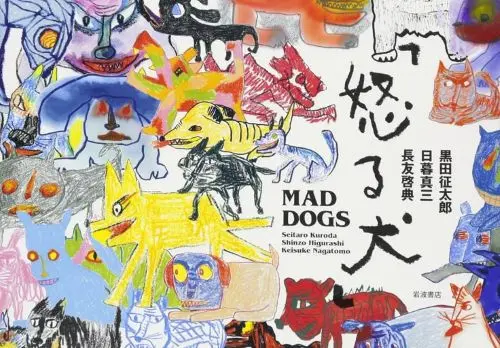 怒る犬
黒田征太郎
日暮真三
長友啓典
MAD
DOGS
Seitaro Kuroda
Shinzo Higurashi
Keisuke Nagatomo
岩波書店